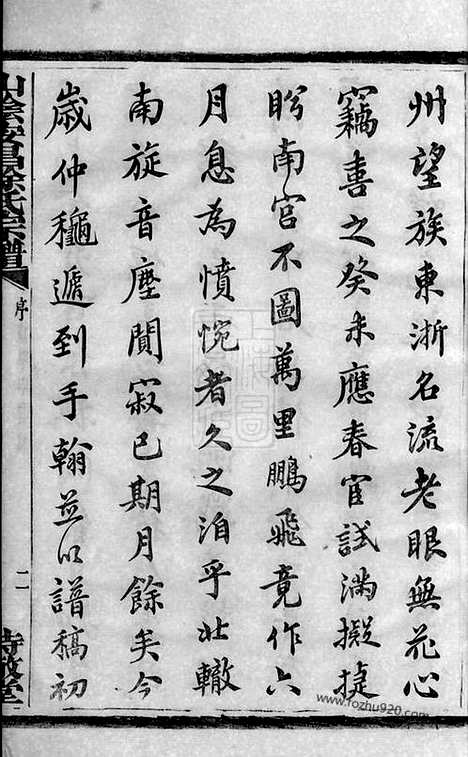 州望族東浙名流老眼無花心
竊喜之癸未應春官試滿擬捷
盼南宮不圖萬里鵬飛竟作六
月息為憤惋者久之洎乎北轍
南旋音塵閴寂已期月餘矣今
歲仲龝遞到手翰並以譜稿初
山陰安昌徐氏宗譜
序
二
www.fozhu920.com